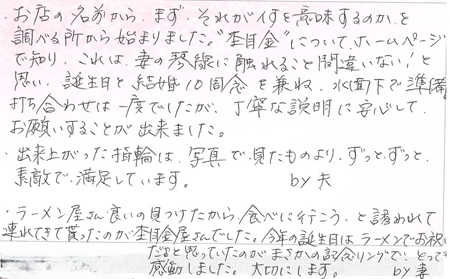 ・お店の名前から、まず、それが何を意味するのか、と
調べる所から始まりました。"杢目金"について、ホームページ
で知り、これは、妻の琴線に触れること間違いない！と
思い、誕生日と結婚10周年を兼ね、水面下で準備
打ち合わせは一度でしたが、丁寧な説明に安心して、
お願いすることが出来ました。
・出来上がった指輪は、写真で見たものより、ずっと、ずっと、
素敵で、満足しています。 by 夫
・ラーメン屋さん良いの見つけたから、食べに行こう、と誘われて
連れてきて貰ったのが杢目金屋さんでした。今年の誕生日はラーメンでお祝い
だなと思っていたのが、まさかの記念リングで！とっても
感動しました。大切にします。 by 妻